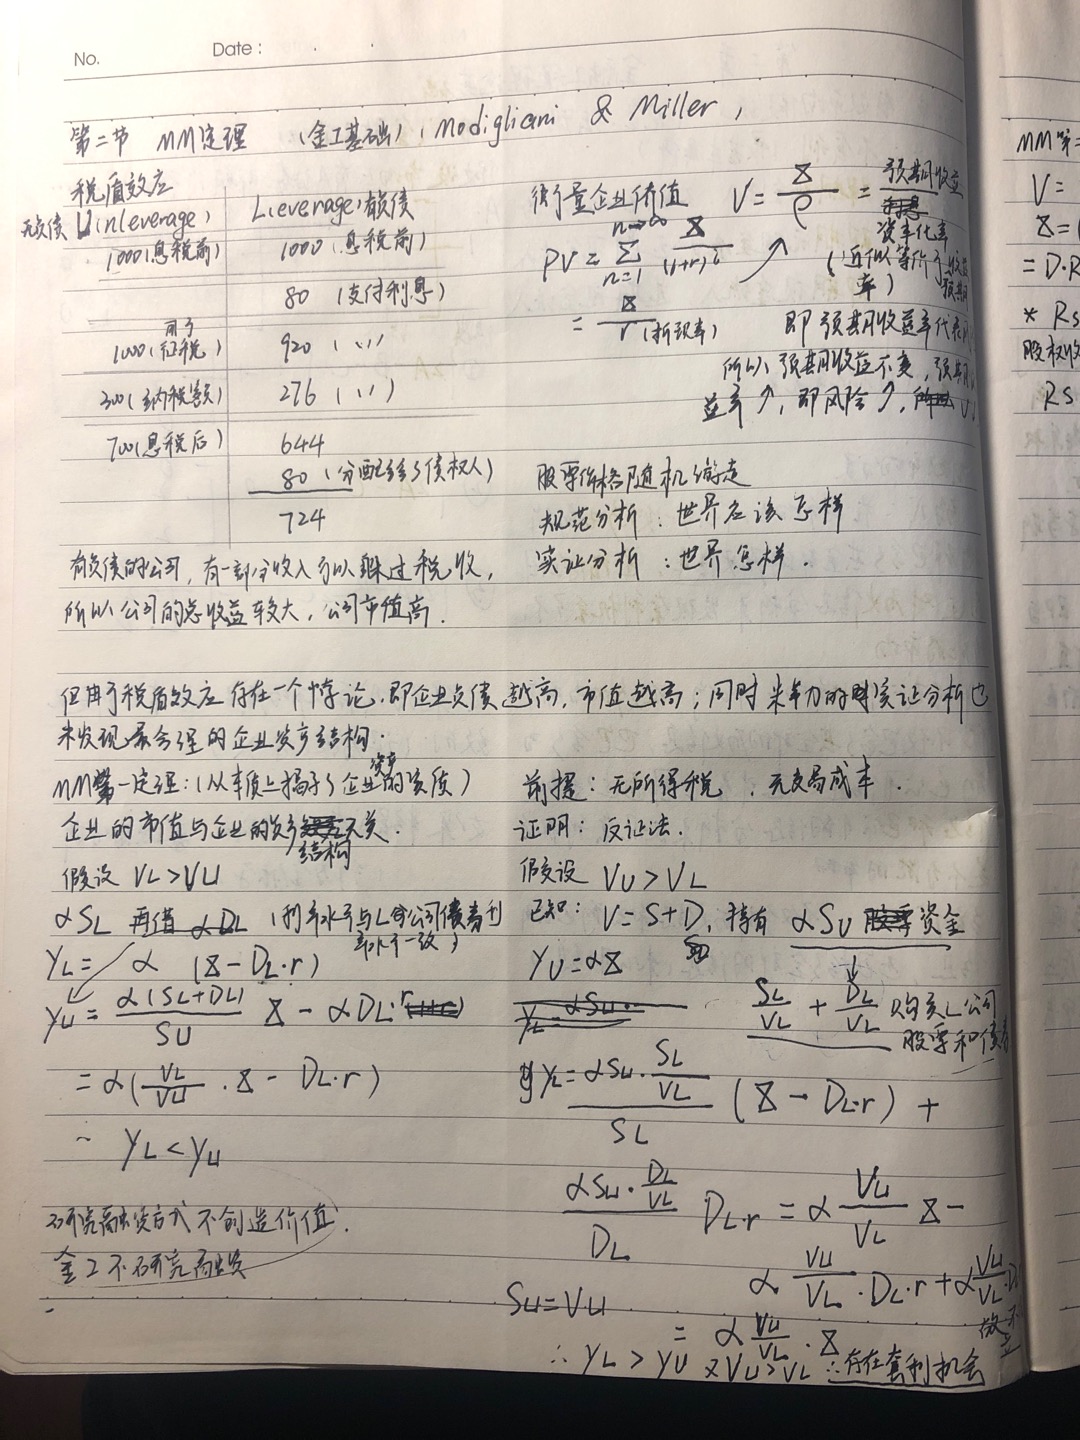 No.
Date :
第二节 MM定理 (金工基础), Modigliani & Miller,
税盾效应
无负债 U(nleverage)
L(everage)有负债
1000(息税前)
1000 (息税前)
80 (支付利息)
用于
1000(征税)
920 (〃)
300(纳税额)
276 (〃)
700(息税后)
644
80 (分配给了债权人)
724
有负债的公司, 有一部分收入可以躲过税收,
所以公司的总收益较大, 公司市值高.
衡量企业价值 V = X/ρ = 预期收益/资本化率
(近似等于预期收益率)
PV = ∑ n=1 n→∞ X/(1+r)^i
= X/r (折现率)
即 预期收益率代表
所以, 预期收益不变, 预期
益率↗, 即风险↗,
股票价格随机游走
规范分析 : 世界应该怎样
实证分析 : 世界怎样.
但由于税盾效应 存在一个悖论, 即企业负债越高, 市值越高; 同时 米勒的实证分析也
未发现最合理的企业资本结构.
MM第一定理: (从本质上揭示了企业资本的实质)
企业的市值与企业的资本结构无关.
假设 VL>VU
αSL 再借 αDL (利率水平与L公司债券利率水平一致)
YL = α (X−DL·r)
YU = α(SL+DL)/SU X − αDL·r
= α(VL/VU · X − DL·r)
∴ YL<YU
研究融资方式不创造价值.
金工不研究融资
前提: 无所得税 , 无交易成本.
证明: 反证法.
假设 VU>VL
已知: V=S+D, 持有 αSU 资金
YU=αX
SL/VL + DL/VL 购买L公司
股票和债券
YL = αSU·SL/VL / SL (X−DL·r) +
αSU·DL/VL / DL DL·r = α VU/VL X −
α VU/VL · DL·r + α VU/VL · DL
SU=VU
= α VU/VL · X
∴ YL > YU 又VU>VL ∴存在套利机会
故不
立
MM第二
V=
X=
= D·R
* Rs
股权收
Rs